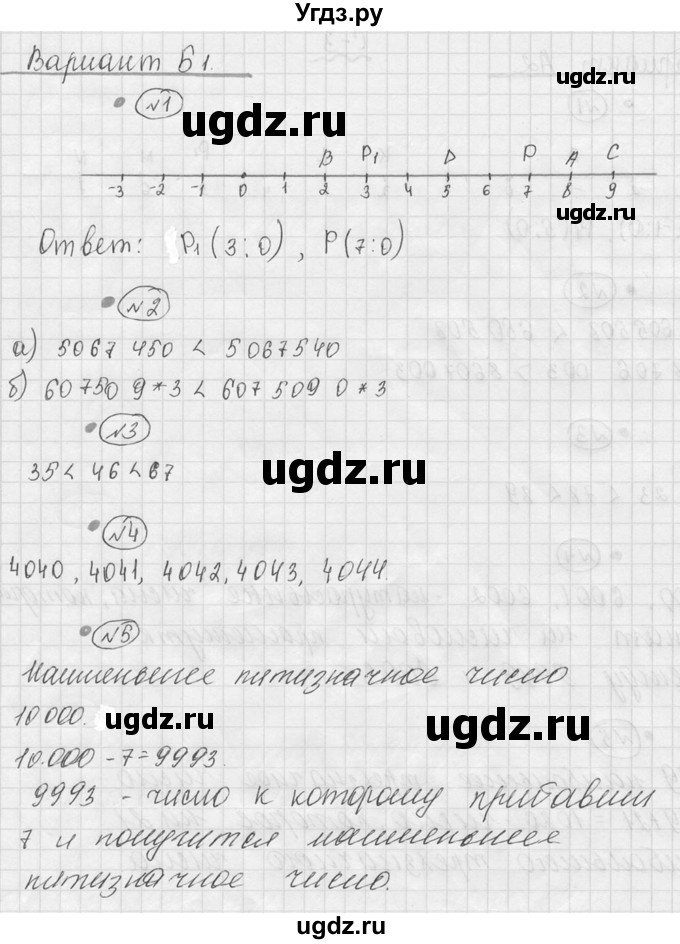 Угдз.ру
Вариант Б1.
ugdz.ru
№1
ugdz.ru
B P₁ D P A C
-3 -2 -1 0 1 2 3 4 5 6 7 8 9
ugdz.ru
Ответ: P₁(3:0), P(7:0)
№2
а) 5067 450 < 5067540
б) 60750 9*3 < 607 509 0*3
№3
ugdz.ru
35 < 46 < 67
№4
4040, 4041, 4042, 4043, 4044.
№5
Наименьшее пятизначное число
10 000. ugdz.ru ugdz.ru
10.000 - 7 = 9993.
9993 - число к которому прибавим
7 и получится наименьшее
пятизначное число.
ugdz.ru